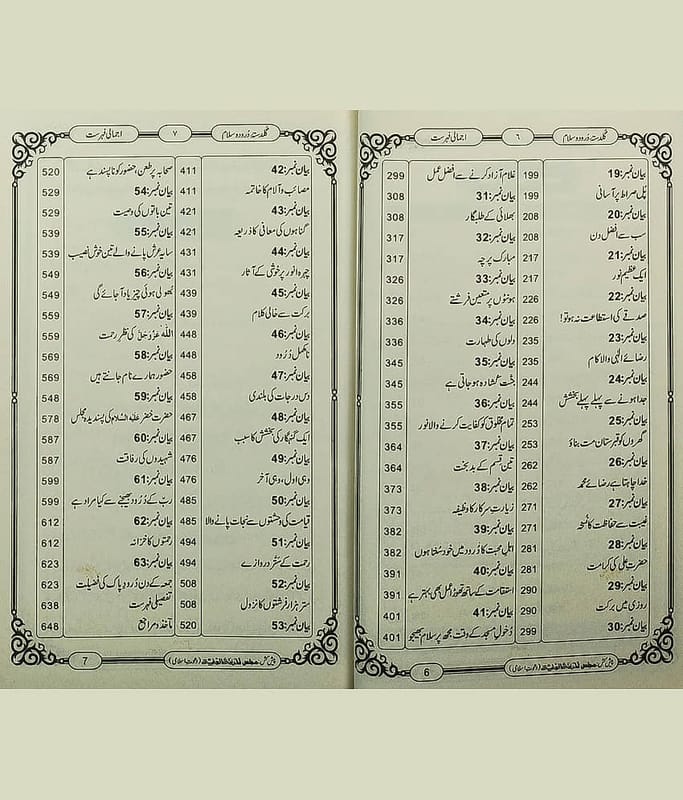 گلدستۂ دُرود و سلام ٦ اجمالی فہرست
بیان نمبر:19 199
پُل صراط پر آسانی 199
بیان نمبر:20 208
سب سے افضل دن 208
بیان نمبر:21 217
ایک عظیم نور 217
بیان نمبر:22 226
صدقے کی استطاعت نہ ہو تو! 226
بیان نمبر:23 235
رضائے الٰہی والا کام 235
بیان نمبر:24 244
جدا ہونے سے پہلے پہلے بخشش 244
بیان نمبر:25 253
گھروں کو قبرستان مت بناؤ 253
بیان نمبر:26 262
خدا چاہتا ہے رضائے محمد 262
بیان نمبر:27 271
غیبت سے حفاظت کا نُسخہ 271
بیان نمبر:28 281
حضرت علی کی کرامت 281
بیان نمبر:29 290
روزی میں برکت 290
بیان نمبر:30 299
غلام آزاد کرنے سے افضل عمل 299
بیان نمبر:31 308
بھلائی کے طلبگار 308
بیان نمبر:32 317
مبارک پرچہ 317
بیان نمبر:33 326
ہونٹوں پر متعین فرشتے 326
بیان نمبر:34 336
دلوں کی طہارت 336
بیان نمبر:35 345
جنّت کشادہ ہو جاتی ہے 345
بیان نمبر:36 355
تمام مخلوق کو کفایت کرنے والا نور 355
بیان نمبر:37 364
تین قسم کے بدبخت 364
بیان نمبر:38 373
زیارتِ سرکار کا وظیفہ 373
بیان نمبر:39 382
اہلِ محبت کا دُرود میں خود سنتا ہوں 382
بیان نمبر:40 391
استقامت کے ساتھ تھوڑا عمل بھی بہتر ہے 391
بیان نمبر:41 401
دُخولِ مسجد کے وقت مجھ پر سلام بھیجو 401
پیش کش: مجلس المدینۃ العلمیۃ (دعوتِ اسلامی) 6
گلدستۂ دُرود و سلام ٧ اجمالی فہرست
بیان نمبر:42 411
مصائب و آلام کا خاتمہ 411
بیان نمبر:43 421
گناہوں کی معافی کا ذریعہ 421
بیان نمبر:44 431
چہرۂ انور پر خوشی کے آثار 431
بیان نمبر:45 439
برکت سے خالی کلام 439
بیان نمبر:46 448
نامکمل دُرُود 448
بیان نمبر:47 458
دس درجات کی بلندی 458
بیان نمبر:48 467
ایک گنہگار کی بخشش کا سبب 467
بیان نمبر:49 476
وہی اول، وہی آخر 476
بیان نمبر:50 485
قیامت کی دہشتوں سے نجات پانے والا 485
بیان نمبر:51 494
رحمت کے ستّر دروازے 494
بیان نمبر:52 508
ستر ہزار فرشتوں کا نزول 508
بیان نمبر:53 520
صحابہ پر طعن، حضور کو ناپسند ہے 520
بیان نمبر:54 529
تین باتوں کی وصیت 529
بیان نمبر:55 539
سایۂ عرش پانے والے تین خوش نصیب 539
بیان نمبر:56 549
بھولی ہوئی چیز یاد آجائے گی 549
بیان نمبر:57 559
اللہ عَزَّوَجَلَّ کی نظرِ رحمت 559
بیان نمبر:58 569
حضور ہمارے نام جانتے ہیں 569
بیان نمبر:59 578
حضرت خضر علیہ السلام کی پسندیدہ مجلس 578
بیان نمبر:60 587
شہیدوں کی رفاقت 587
بیان نمبر:61 599
ربّ کے دُرُود بھیجنے سے کیا مراد ہے 599
بیان نمبر:62 612
رحمتوں کا خزانہ 612
بیان نمبر:63 623
جمعہ کے دن دُرودِ پاک کی فضیلت 623
تفصیلی فہرست 638
مآخذ و مراجع 648
پیش کش: مجلس المدینۃ العلمیۃ (دعوتِ اسلامی) 7